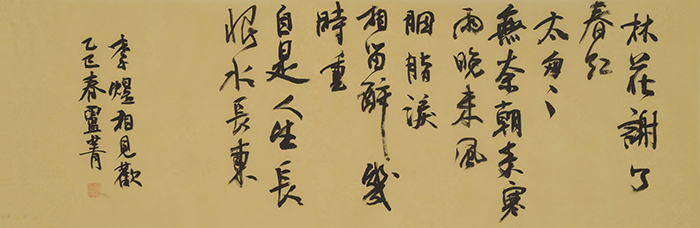 林花謝了
春紅
太匆〻
無奈朝来寒
雨晚来風
胭脂淚
相留醉幾
時重
自是人生長
恨水長東
李煜相見歡
乙巳春盧菁